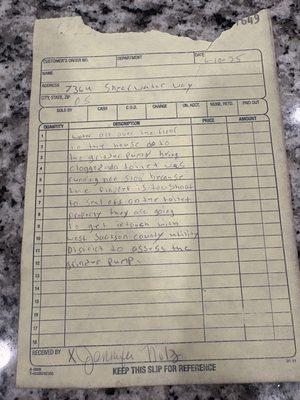 7649
CUSTOMER'S ORDER NO. DEPARTMENT DATE 6-10-25
NAME
ADDRESS 7364 Shrewater way
CITY, STATE, ZIP O S
SOLD BY CASH C.O.D. CHARGE ON. ACCT. MDSE. RETD. PAID OUT
QUANTITY DESCRIPTION PRICE AMOUNT
1 water all over the floor
2 in the house do to
3 the grinder pump being
4 clogged toilet was
5 running slow because
6 the is too short
7 to seal off on the toilet
8 properly they are going
9 to get in touch with
10 west Jackson county utility
11 District to assess the
12 grinder pump.
13
14
15
16
17
18
RECEIVED BY X Jennifer
KEEP THIS SLIP FOR REFERENCE